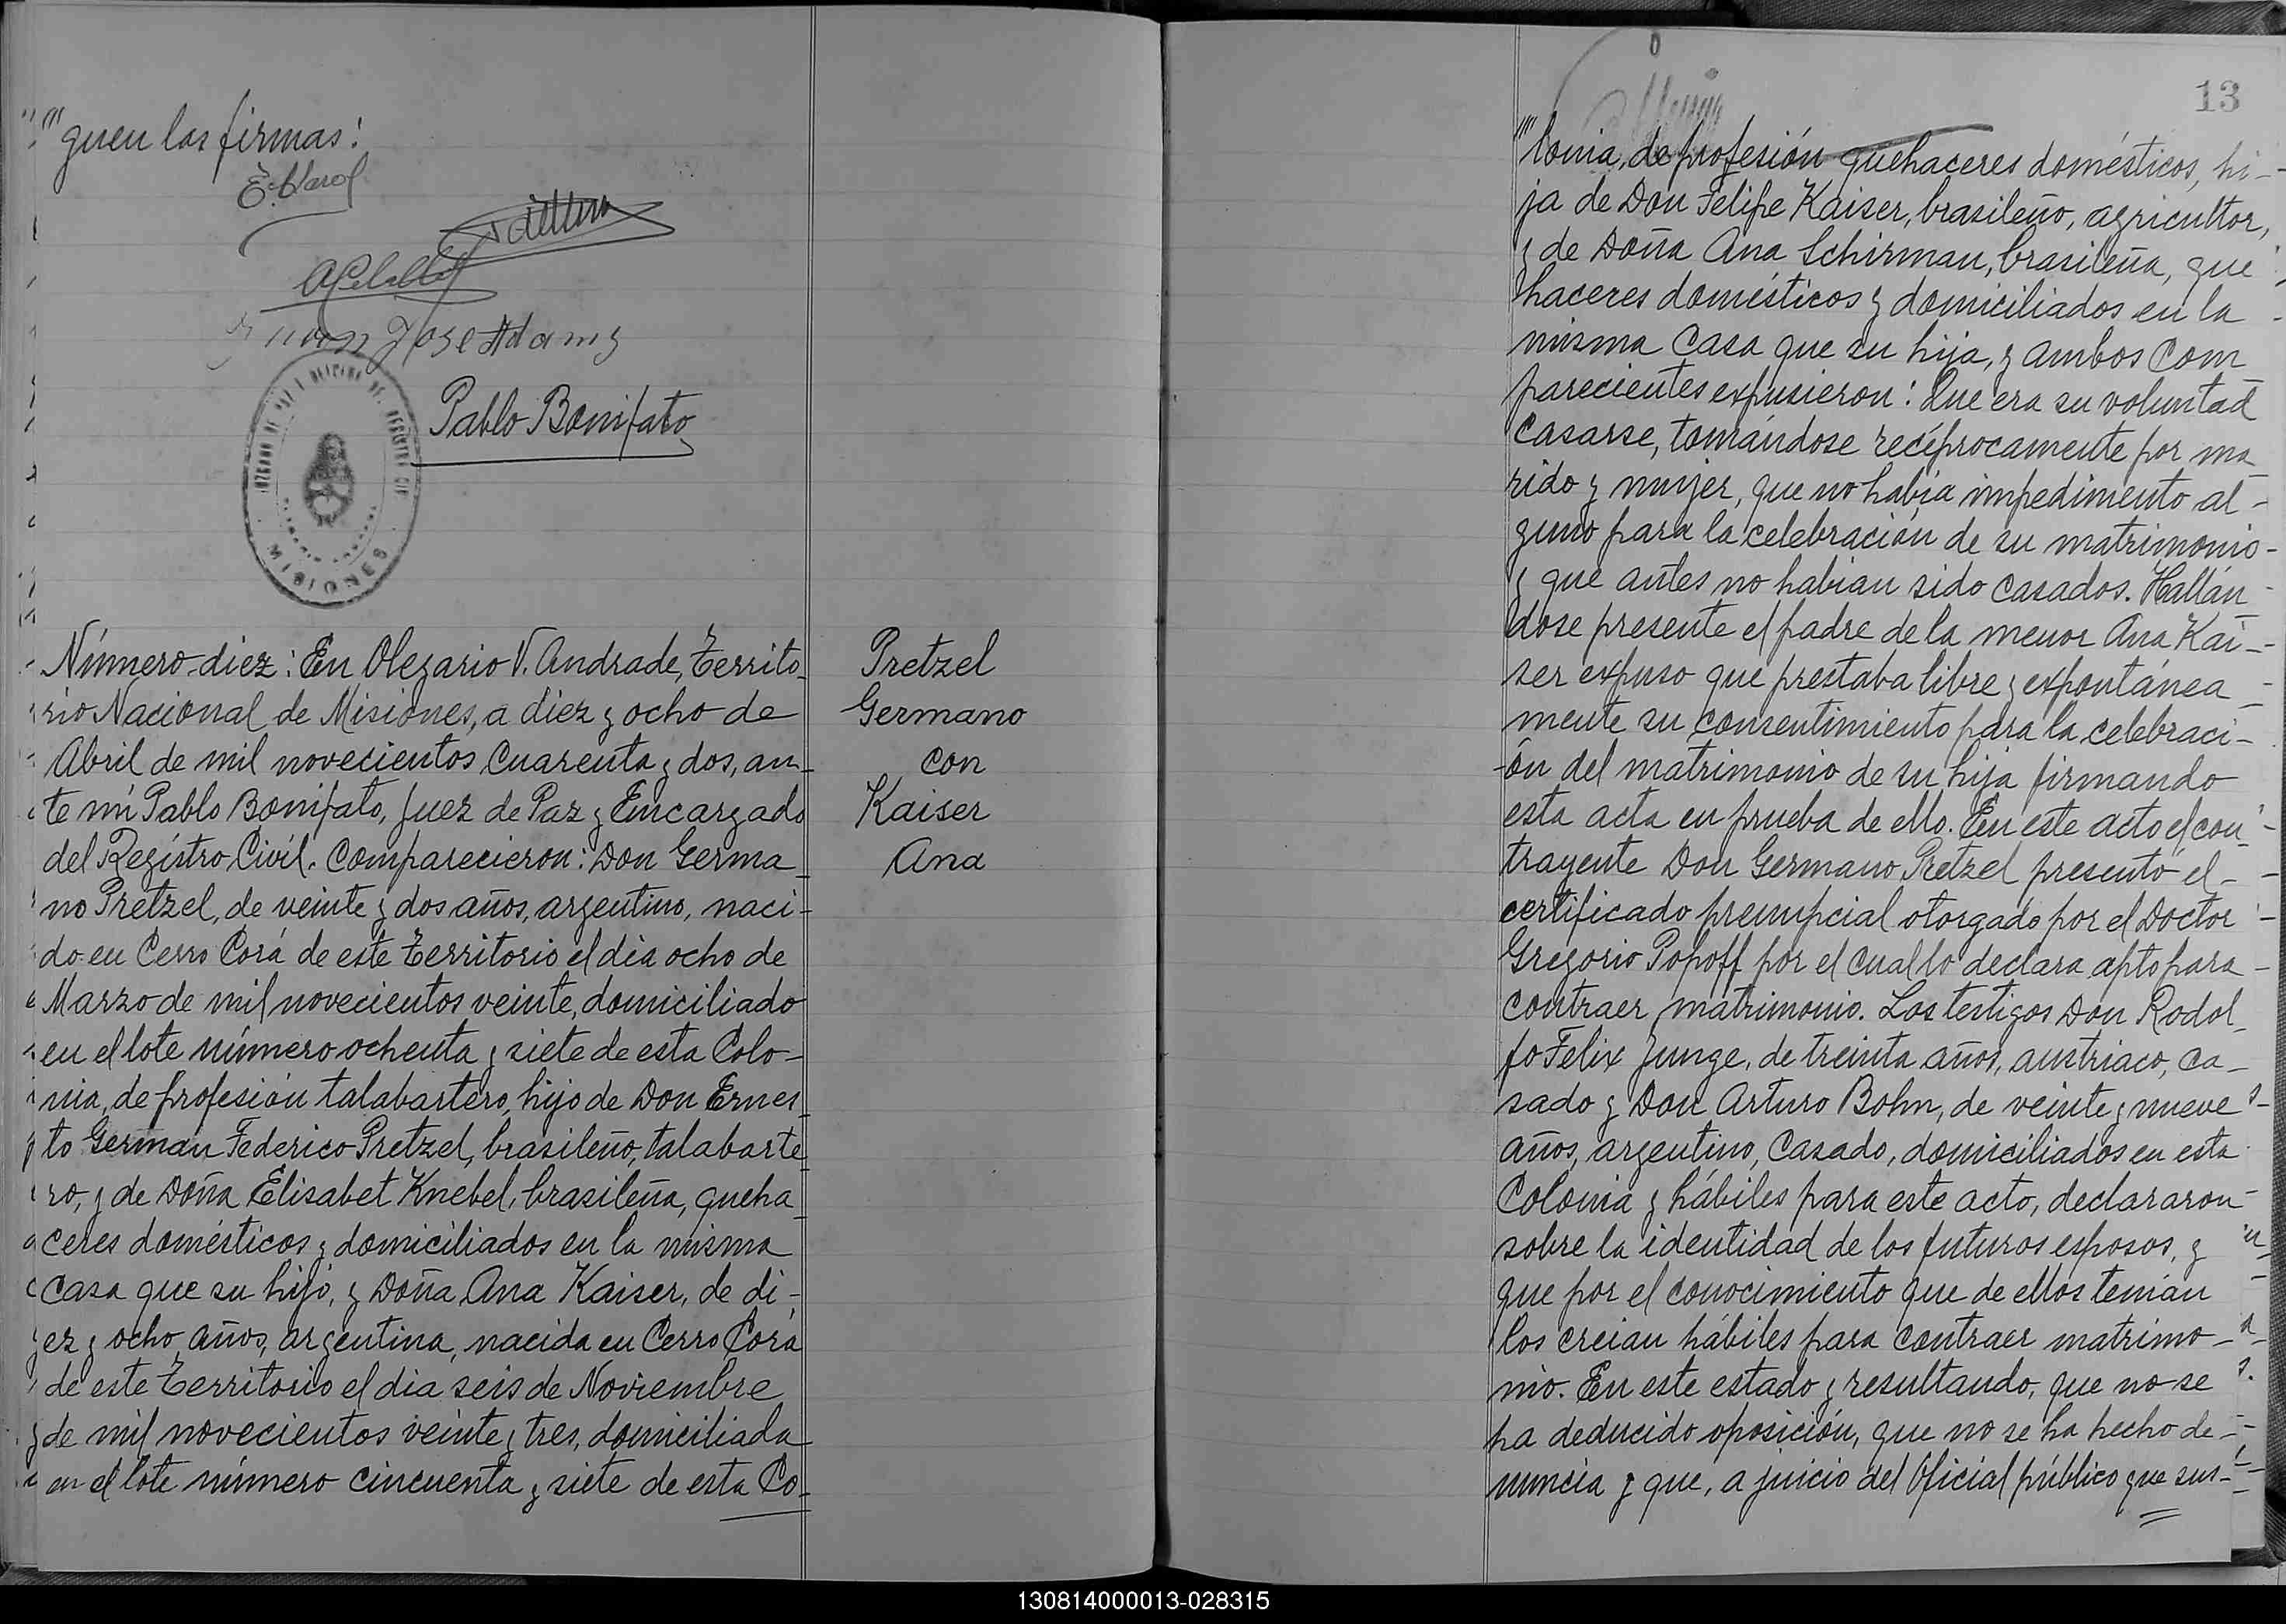 "" guen las firmas:
Juan Jose Adams
Pablo Bonifato
MISIONES
Número diez: En Olegario V. Andrade, territo-
rio Nacional de Misiones, a diez y ocho de
Abril de mil novecientos cuarenta y dos, an-
te mi Pablo Bonifato, Juez de Paz y Encargado
del Registro Civil. Comparecieron: Don Germa-
no Pretzel, de veinte y dos años, argentino, naci-
do en Cerro Corá de este territorio el dia ocho de
Marzo de mil novecientos veinte, domiciliado
en el lote número ochenta y siete de esta Colo-
nia, de profesión talabartero, hijo de Don Ernes-
to German Federico Pretzel, brasileño, talabarte-
ro, y de Doña Elisabet Knebel, brasileña, queha-
ceres domésticos y domiciliados en la misma
casa que su hijo, y Doña Ana Kaiser, de di-
ez y ocho años, argentina, nacida en Cerro Corá
de este territorio el dia seis de Noviembre
de mil novecientos veinte y tres, domiciliada
en el lote número cincuenta y siete de esta Co-
Pretzel
Germano
con
Kaiser
Ana
13
"" lonia, de profesión quehaceres domésticos, hi-
ja de Don Felipe Kaiser, brasileño, agricultor,
y de Doña Ana Schirman, brasileña, que
haceres domésticos y domiciliados en la
misma casa que su hija, y ambos com
parecientes expusieron: Que era su voluntad
casarse, tomándose recíprocamente por ma
rido y mujer, que no había impedimento al-
guno para la celebración de su matrimonio-
y que antes no habian sido casados. Hallán
dose presente el padre de la menor Ana Kai-
ser expuso que prestaba libre y expontánea
mente su consentimiento para la celebraci-
-ón del matrimonio de su hija firmando
esta acta en prueba de ello. En este acto el con-
trayente Don Germano Pretzel presentó el-
certificado prenupcial otorgado por el Doctor
Gregorio Popoff por el cual lo declara apto para-
contraer matrimonio. Los testigos Don Rodol-
fo Felix Junge, de treinta años, austriaco, ca-
sado y Don Arturo Bohn, de veinte y nueve
años, argentino, casado, domiciliados en esta
Colonia y hábiles para este acto, declararon-
sobre la identidad de los futuros esposos, y
que por el conocimiento que de ellos tenian
los creian hábiles para contraer matrimo-
nio. En este estado y resultando, que no se
ha deducido oposición, que no se ha hecho de-
nuncia y que, a juicio del Oficial público que sus-
130814000013-028315